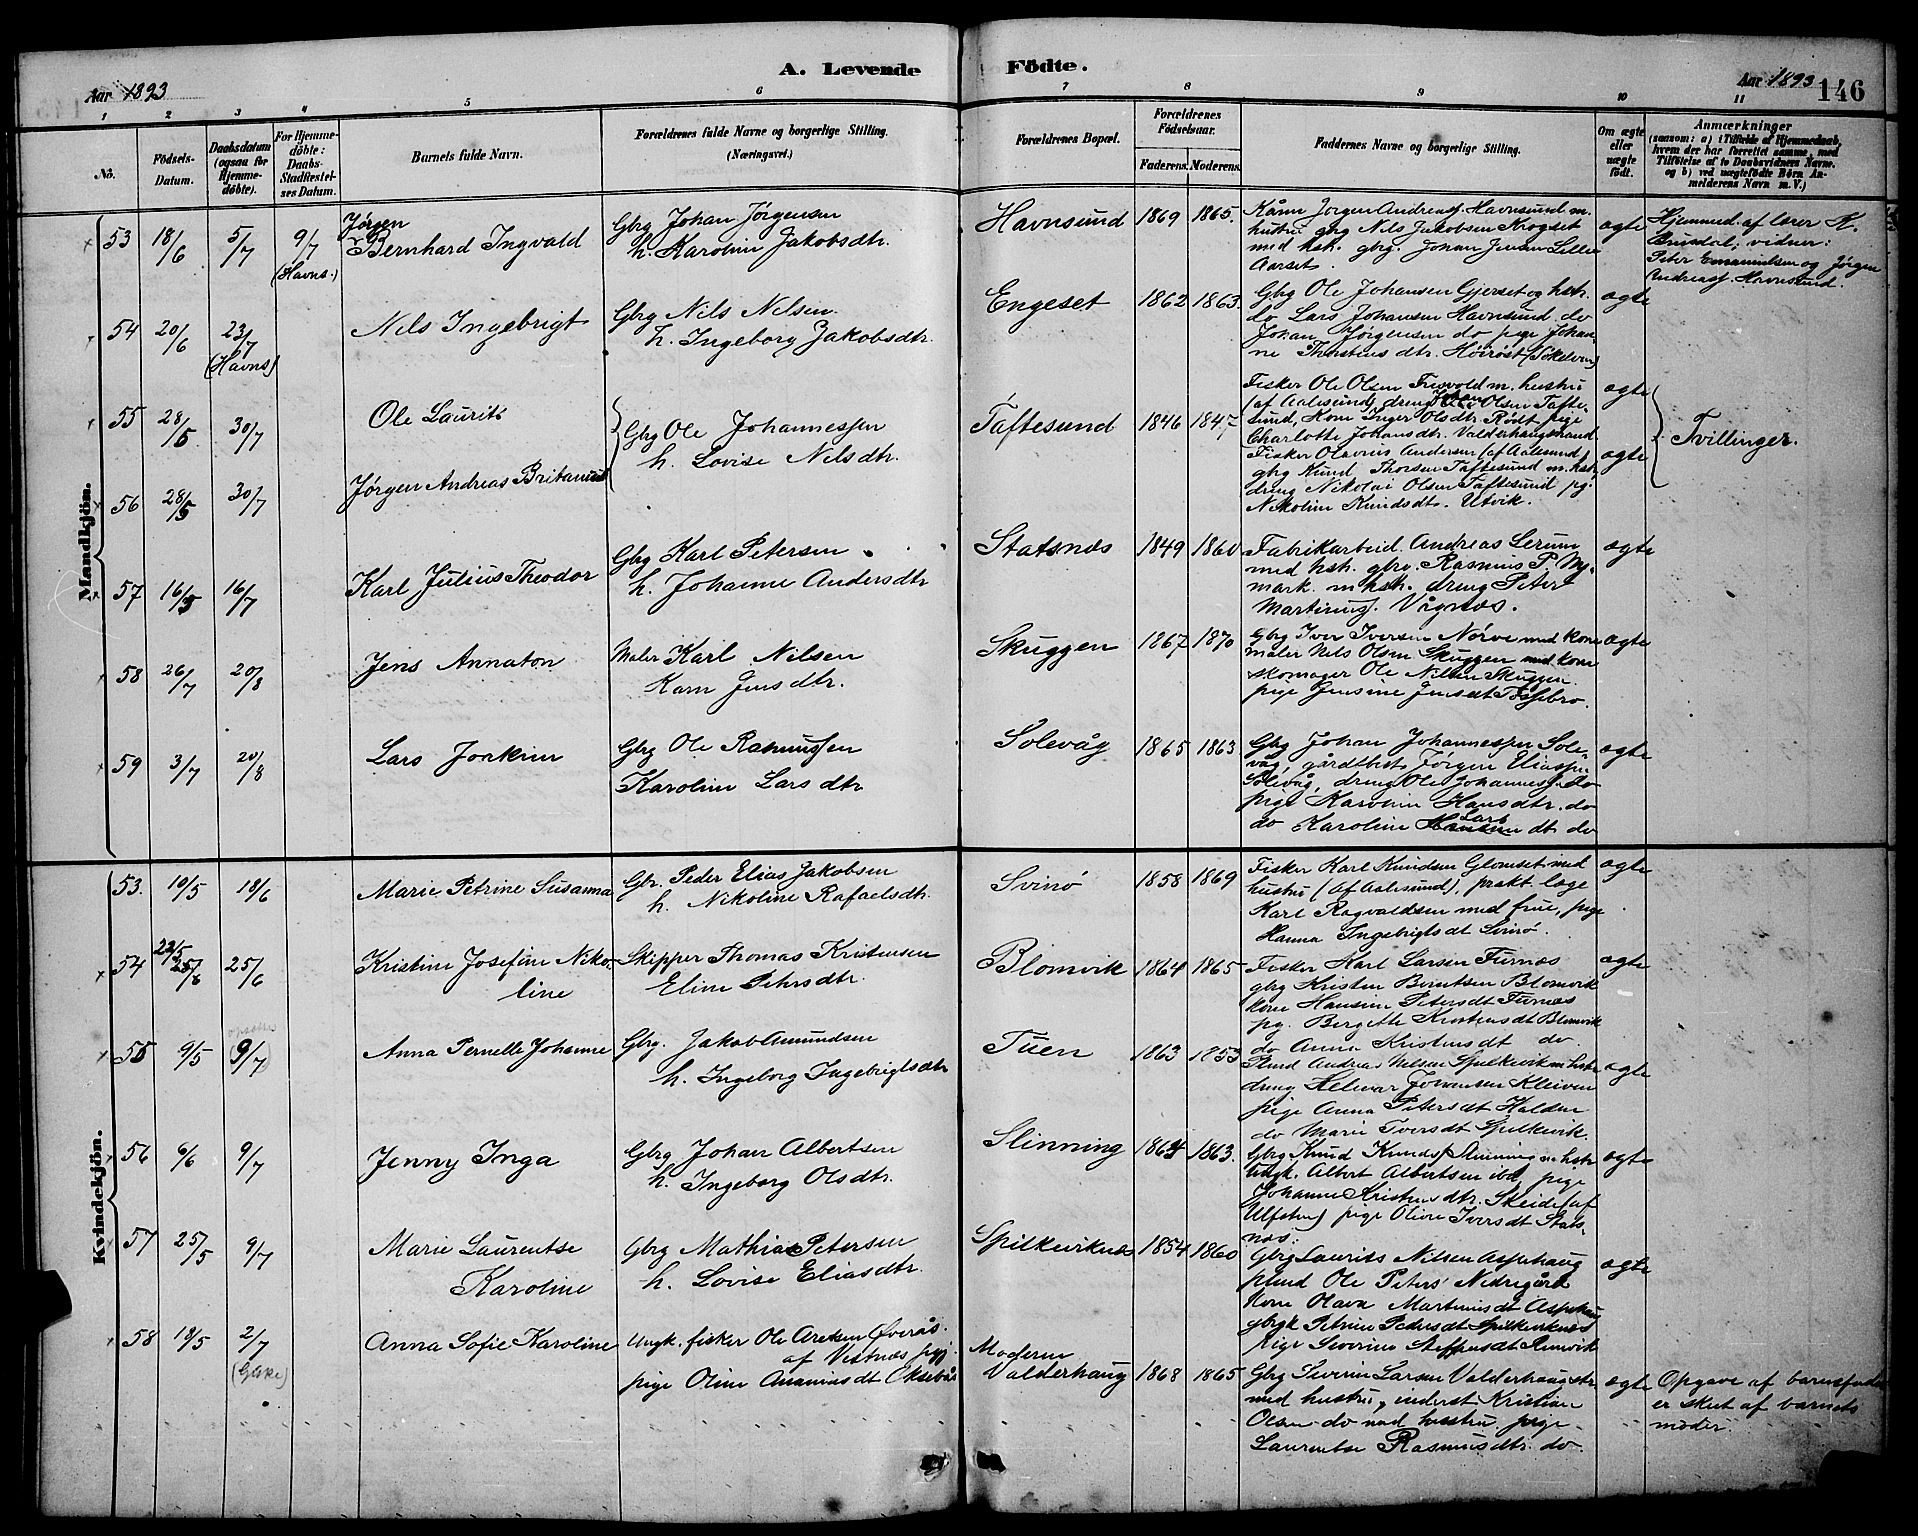 A. Levende Födte.
Aar 1893
Aar 1893
146
1 2 3 4 5 6 7 8 9 10 11
No.
Födsels-Datum.
Daabsdatum (ogsaa for Hjemmedöbte).
For Hjemmedöbte: Daabs-Stadfæstelses Datum.
Barnets fulde Navn.
Forældrenes fulde Navne og borgerlige Stilling. (Næringsvei.)
Forældrenes Bopæl.
Forældrenes Födselsaar.
Faderens. Moderens.
Faddernes Navne og borgerlige Stilling.
Om ægte eller uægte födt.
Anmærkninger
(saasom: a) i Tilfælde af Hjemmedaab, hvem der har forrettet samme, med Tilföielse af to Daabsvidners Navne, og b) ved uægtefödte Börn Anmelderens Navn m. V.)
Mandkjön.
53 18/6 5/7 9/7 (Havns.)
Jørgen
Bernhard Ingvald
Gbrg Johan Jörgensen
h. Karoline Jakobsdtr.
Havnsund 1869 1865
Kårm Jörgen Andreass. Havnsund m.
hustru gbrg Nils Jakobsen Krogset
med hst. gbrg. Johan Jensen Lille
Aarset.
ægte
Hjemmed. af lærer K.
Brusdal, vidner:
Peter Emanuelsen og Jörgen
Andreass. Havnsund.
54 20/6 23/7 (Havns)
Nils Ingebrigt
Gbrg Nils Nilsen
h. Ingeborg Jakobsdtr.
Engeset 1862 1863.
Gbrg Ole Johansen Gjerset og hstr.
do Lars Johansen Havnsund, do
Johan Jørgensen do pige Johan
ne Thostensdtr. Höiröst (Sökelven)
ægte
55 28/5 30/7
Ole Laurits
Gbrg Ole Johannessen
h. Lovise Nilsdtr.
Taftesund 1846 1847
Fisker Ole Olsen Fresvold m. hustru
(af Aalesund), dreng Johan Olsen Tafte-
sund, Kone Inger Olsdtr. Rödt, pige
Charlotte Johansdtr. Valderhaugstrand
ægte
Tvillinger.
56 28/5 30/7
Jørgen Andreas Britanius
Fisker Olavus Andersen (af Aalesund)
gbrg Knud Thorsen Taftesund m. hstr
dreng Nikolai Olsen Taftesund pg.
Nikoline Knudsdtr. Utvik.
ægte
57 16/5 16/7
Karl Julius Theodor
Gbrg Karl Petersen
h. Johanne Andersdtr
Statsnæs 1849 1860
Fabrikarbeid. Andreas Lerum
med hstr. gbrg. Rasmus P. My-
mark. m hstr. dreng Peter
Martinuss. Vågnæs.
ægte
58 26/7 20/8
Jens Annaton
Maler Karl Nilsen
Karn Jensdtr.
Skuggen 1867 1870
Gbrg Iver Iversen Nørve med kone
maler Nils Olsen Skuggen med kone
skomager Ole Nilsen Skuggen
pige Jensine Jensdt Fossebro.
ægte
59 3/7 20/8
Lars Joakim
Gbrg Ole Rasmussen
Karoline Larsdtr
Solevåg 1865 1863
Gbrg Johan Johannessen Sole-
våg, gårdbest Jørgen Eliassen
Solevåg, dreng Ole Johanness. do
pige Karoline Hansdtr. do
do Karoline Lars dt do
ægte
Kvindekjön.
53. 10/5 18/6
Marie Petrine Susanna
Gbr. Peder Elias Jakobsen
h. Nikoline Rafaelsdtr.
Svinö 1858 1869
Fisker Karl Knudsen Glomset med
hustru (af Aalesund), prakt. læge
Karl Ragvaldsen med frue, pige
Hanna Ingebrigtsdt Svinö.
ægte
54 22/5 25/6 25/6
Kristine Josefine Niko-
line
Skipper Thomas Kristensen
Eline Petersdtr.
Blomvik 1864 1865
Fisker Karl Larsen Furnæs
gbrg Kristen Berntsen Blomvik
kone Hansine Petersdt Furnæs
pg. Bergette Kristensdt Blomvik
do Anna Kristensdt do.
ægte
55 9/5 (9/7)
Anna Pernelle Johanne
Gbrg. Jakob Amundsen
h. Ingeborg Ingebrigtsdtr
Tuen 1863 1853
Plud Andreas Nelsen Spilkevik m hstr
dreng Helmar Johansen Kleiven
pige Anna Petersdt Halden
do Marie Iversdt Spilkevik.
ægte
56 6/6 9/7
Jenny Inga
Gbrg Johan Albertsen
h. Ingeborg Olsdtr.
Slinning 1864 1863.
Gbrg Knud Knuds. Slinning m hstr
Ungk. Albert Albertsen ibd, pige
Johanne Kristensdtr. Skeide (af
Ulfsten) pige Oline Iversdt Stats-
næs.
ægte
57 25/5 9/7
Marie Laurentse
Karoline
Gbrg Mathias Petersen
h. Lovise Eliasdtr.
Spilkeviknæs 1854 1860
Gbrg Laurits Nilsen Aspehaug
plud Ole Peters' Nedregård
Kone Olava Martinusdt Aspehaug
gbrgk Petrine Pedersdt Spilkeviknæs
pige Severine Steffensdt Remvik
ægte
58 18/5 2/7 (Giske)
Anna Sofie Karoline
Ungk. fisker Ole Aretsen Øverås
af Vestnæs pgj
pige Oline Ananiasdt Oksebås
Moderen
Valderhaug 1868 1865
Gbrg Severin Larsen Valderhaugstr
med hustru, inderst Kristian
Olsen do med hustru, pige
Laurentse Rasmusdtr. do
ægte
Opgave af barnefader
er skeet af barnets
moder.